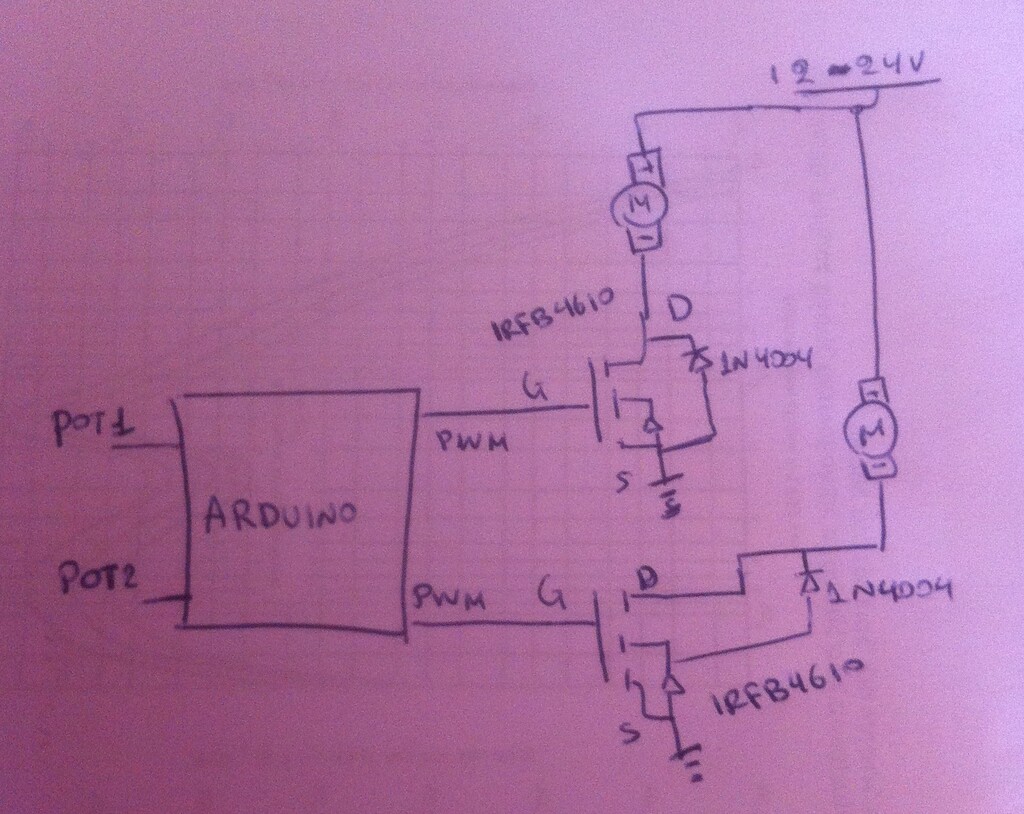 12-24V
+
M
-
IRFB4610
D
1N4004
G
PWM
S
POT1
ARDUINO
POT2
M
-
PWM
G
D
1N4004
IRFB4610
S